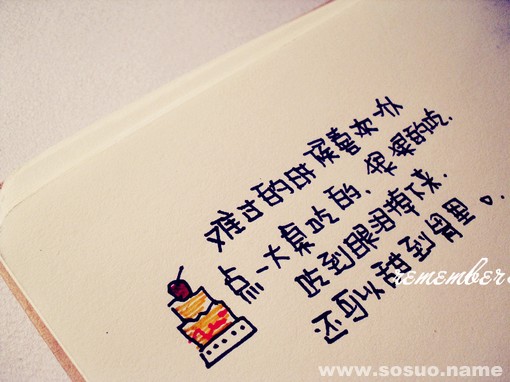 难过的时候喜欢去
点一大桌吃的,狠狠的吃.
吃到眼泪掉下来.
还可以甜到胃里。
remember
www.sosuo.name